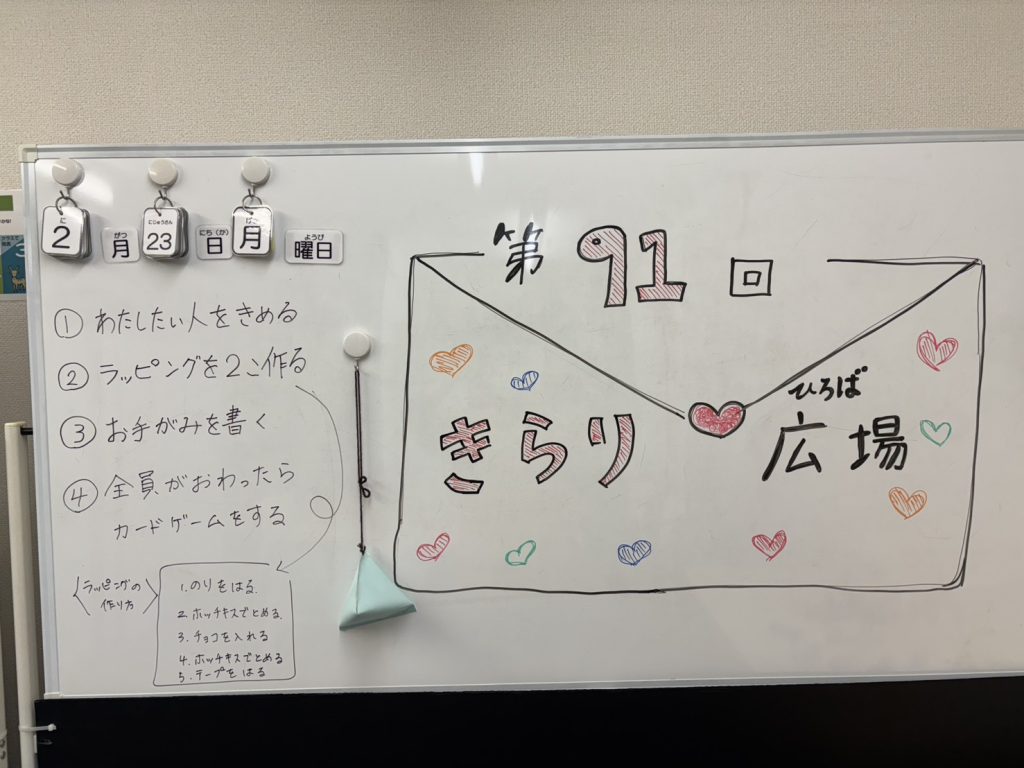 に にじゅうさん げつ
2 がつ 月 23 にち(か) 日 月 ようび 曜日
① わたしたい人をきめる
② ラッピングを2こ作る
③ お手がみを書く
④ 全員がおわったら
カードゲームをする
〈ラッピングの
作り方〉
1. のりをはる.
2. ホッチキスでとめる.
3. チョコを入れる
4. ホッチキスでとめる
5. テープをはる
第91回
きらり
ひろば
広場